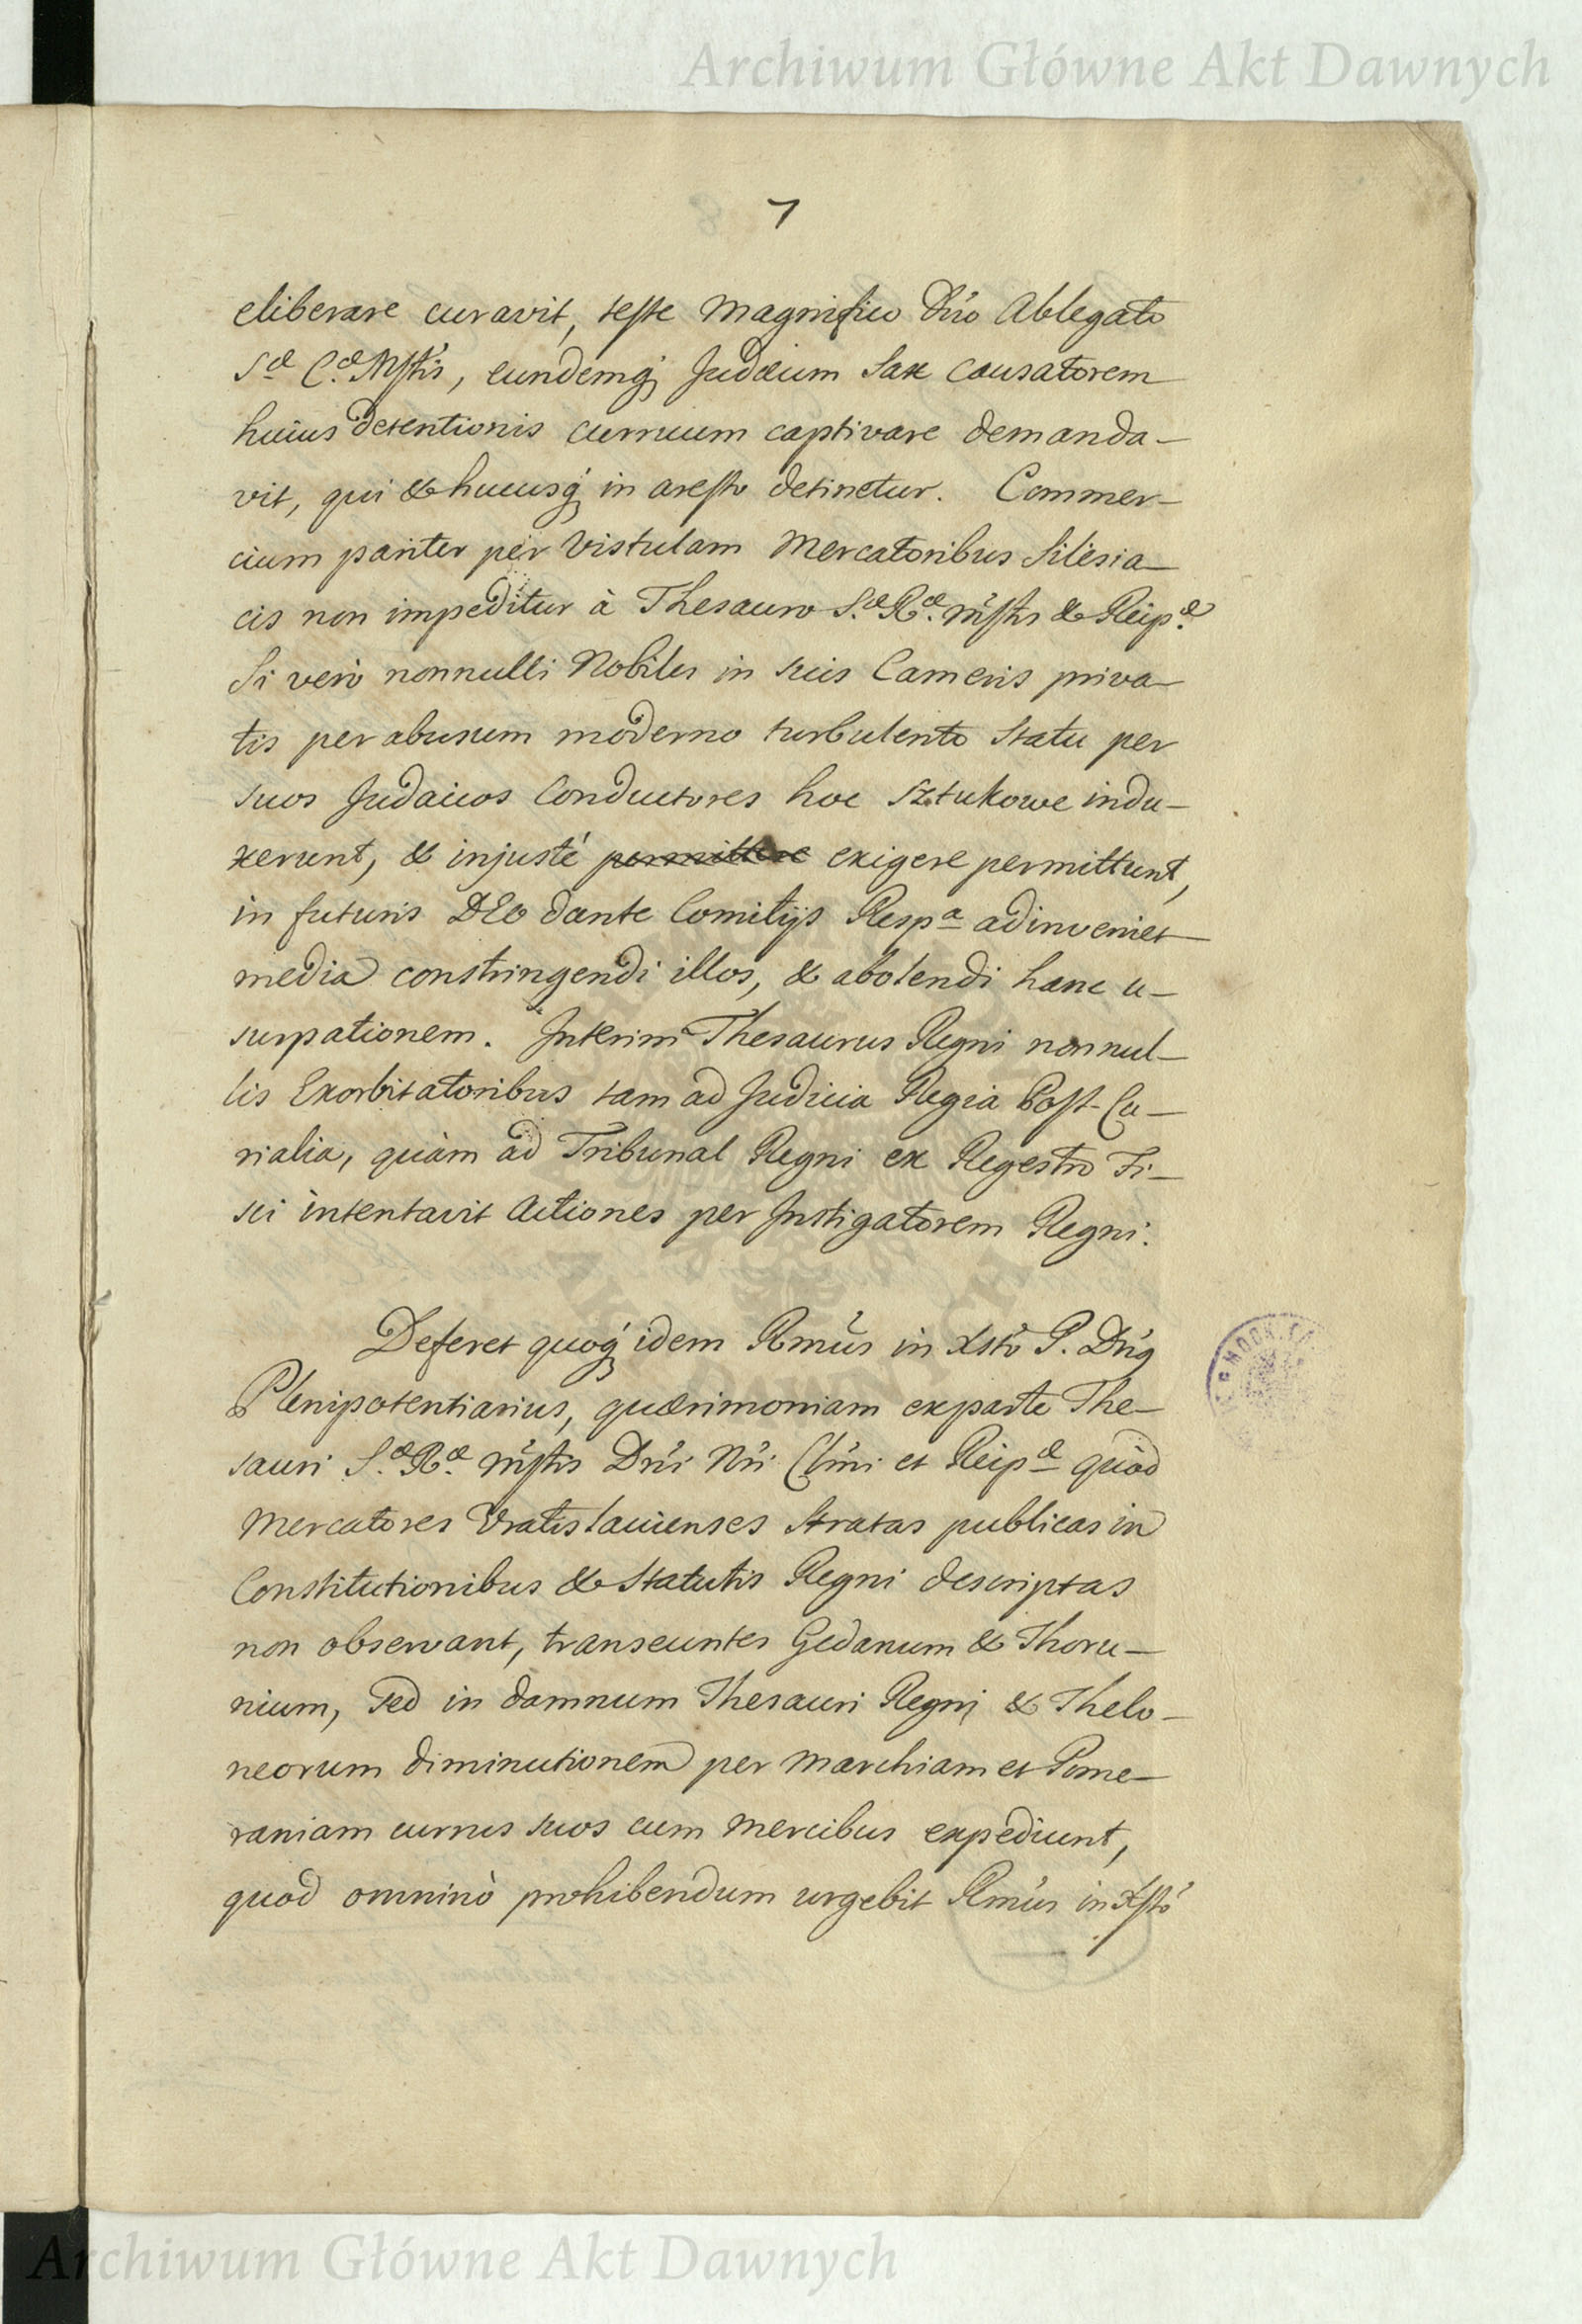 Archiwum Główne Akt Dawnych
7
eliberare curavit, teste Magnifico Dno Ablegato
Sæ C.æ Mstis, eundemq; Judæum Sax causatorem
huius detentionis curruum captivare demanda-
vit, qui & hucusq; in aresto detinetur. Commer-
cium pariter per Vistulam Mercatoribus Silesia-
cis non impeditur à Thesauro S.æ R.æ Mstis & Reip.æ
Si verò nonnulli Nobiles in suis Cameris priva-
tis per abusum moderno turbulento Statu per
suos Judaicos Conductores hoc Sztukowe indu-
xerunt, & injustè permittere exigere permittunt,
in futuris DEO dante Comitijs Respa adinveniet
media constringendi illos, & abolendi hanc u-
surpationem. Interim Thesaurus Regni nonnul-
lis Exorbitatoribus tam ad Judicia Regia Post-Cu-
rialia, quàm ad Tribunal Regni ex Regestro Fi-
sci intentavit Actiones per Instigatorem Regni.
Deferet quoq; idem Rmus in Xsto P. Dnq
Plenipotentiarius, quærimoniam exparte The-
sauri S.æ R.æ Mstis Dni Nri Clmi et Reipæ quòd
Mercatores Vratislavienses Stratas publicas in
Constitutionibus & Statutis Regni descriptas
non observant, transeuntes Gedanum & Thoru-
nium, sed in damnum Thesauri Regni & Thelo-
neorum diminutionem per Marchiam et Pome-
raniam currus suos cum mercibus expediunt,
quod omninò prohibendum urgebit Rmus in Xsto
Archiwum Główne Akt Dawnych